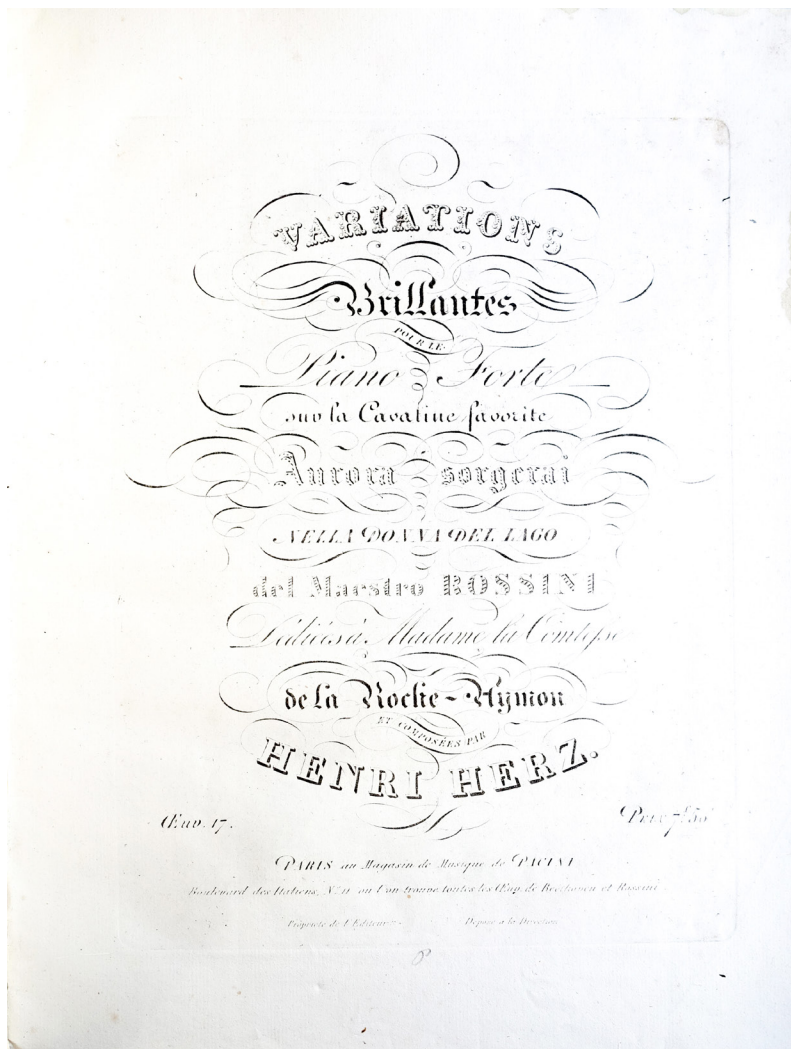 VARIATIONS
Brillantes
POUR LE
Piano Forte
sur la Cavatine favorite
Aurora sorgerai
NELLA DONNA DEL LAGO
del Maestro ROSSINI
Dédiées à Madame la Comtesse
de la Roche-Aymon
ET COMPOSÉES PAR
HENRI HERZ.
Œuv. 17.
Prix 7f 50
PARIS au Magasin de Musique de PACINI
Boulevard des Italiens, No. 11 ou l'on trouve toutes les Œuv. de Beethoven et Rossini
Propriété de l'Editeur
Déposé à la Direction